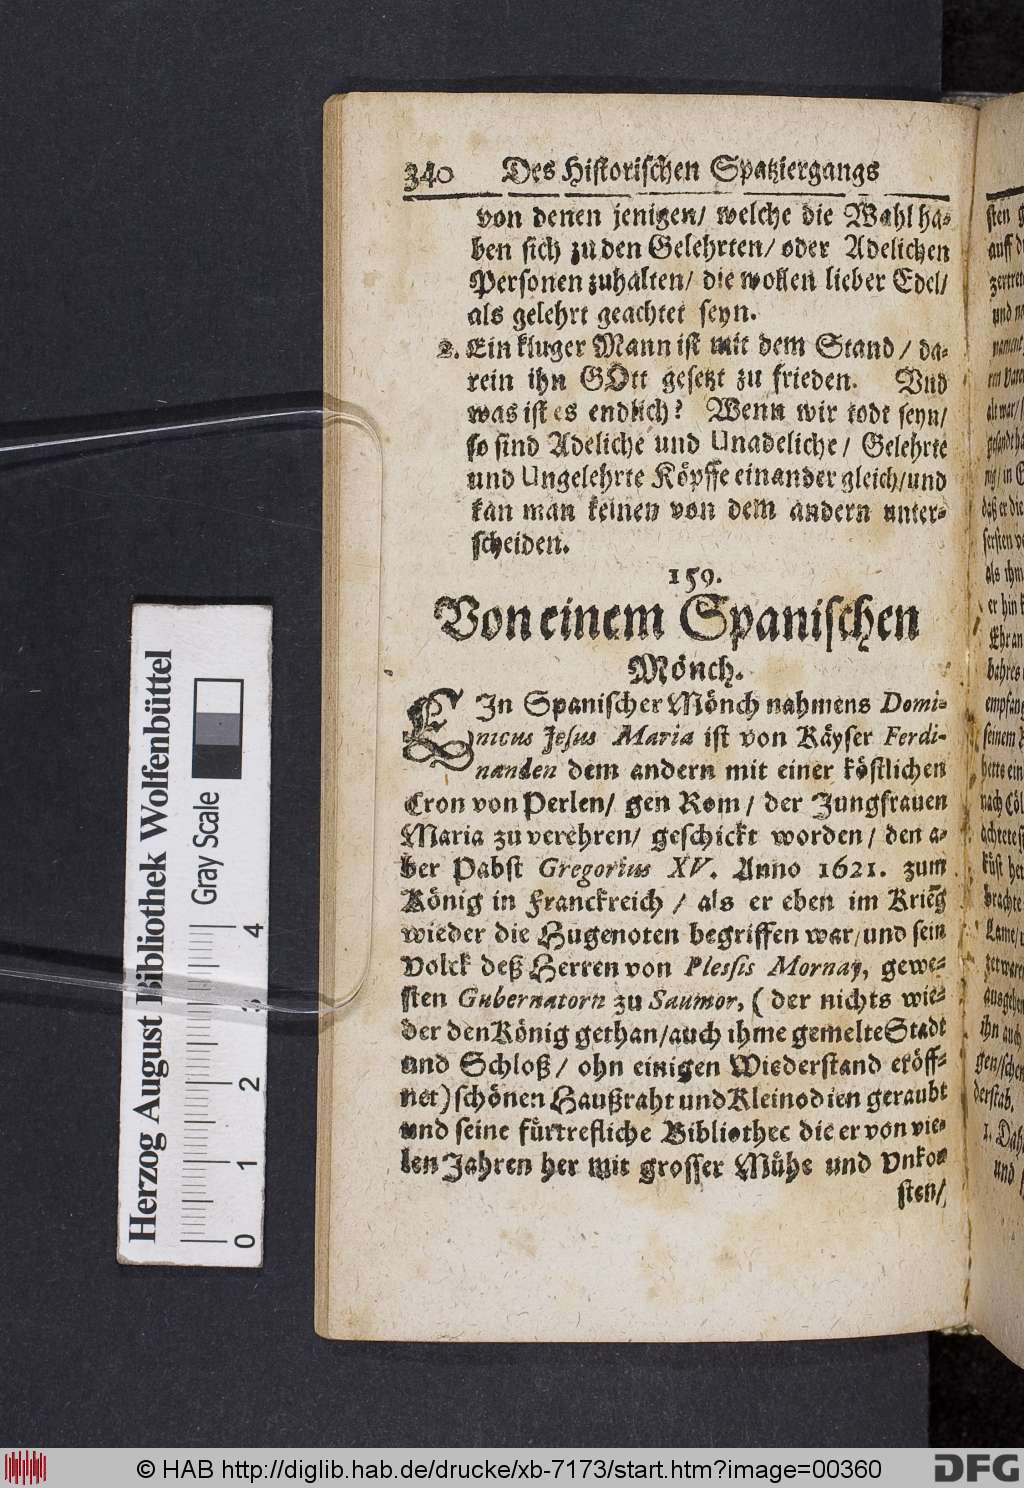 340 Des Historischen Spatziergangs
von denen jenigen/ welche die Wahl ha-
ben sich zu den Gelehrten/ oder Adelichen
Personen zuhalten/ die wollen lieber Edel/
als gelehrt geachtet seyn.
2. Ein kluger Mann ist mit dem Stand/ da-
rein ihn GOtt gesetzt zu frieden. Vnd
was ist es endlich? Wenn wir todt seyn/
so sind Adeliche und Unadeliche/ Gelehrte
und Ungelehrte Köpffe einander gleich/und
kan man keinen von dem andern unter-
scheiden.
159.
Von einem Spanischen
Mönch.
EIn Spanischer Mönch nahmens Domi-
nicus Jesus Maria ist von Käyser Ferdi-
nanden dem andern mit einer köstlichen
Cron von Perlen/ gen Rom/ der Jungfrauen
Maria zu verehren/ geschickt worden/ den a-
ber Pabst Gregorius XV. Anno 1621. zum
König in Franckreich/ als er eben im Krieg
wieder die Hugenoten begriffen war/und sein
Volck deß Herren von Plessis Mornay, gewe-
sten Gubernatorn zu Saumor, (der nichts wie-
der den König gethan/auch ihme gemelte Stadt
und Schloß/ ohn einigen Wiederstand eröff-
net) schönen Haußraht und Kleinodien geraubt
und seine fürtrefliche Bibliothec die er von vie-
len Jahren her mit grosser Mühe und Vnko-
sten/
Herzog August Bibliothek Wolfenbüttel
Gray Scale
0 1 2 3 4
© HAB http://diglib.hab.de/drucke/xb-7173/start.htm?image=00360
DFG